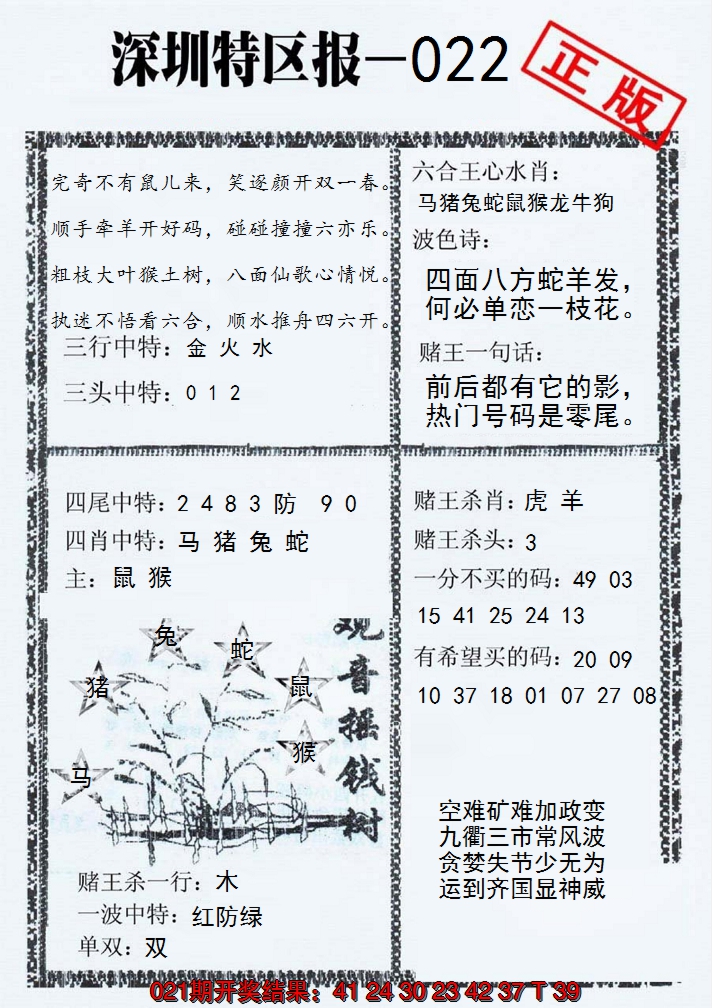 深圳特区报—022
正版
完奇不有鼠儿来，笑逐颜开双一春。
顺手牵羊开好码，碰碰撞撞六亦乐。
粗枝大叶猴土树，八面仙歌心情悦。
执迷不悟看六合，顺水推舟四六开。
三行中特：金 火 水
三头中特：0 1 2
六合王心水肖：
马猪兔蛇鼠猴龙牛狗
波色诗：
四面八方蛇羊发，
何必单恋一枝花。
赌王一句话：
前后都有它的影，
热门号码是零尾。
四尾中特：2 4 8 3 防 9 0
四肖中特：马 猪 兔 蛇
主：鼠 猴
兔
蛇
猪
鼠
猴
马
观音摇钱树
赌王杀一行：木
一波中特：红防绿
单双：双
赌王杀肖：虎 羊
赌王杀头：3
一分不买的码：49 03
15 41 25 24 13
有希望买的码：20 09
10 37 18 01 07 27 08
空难矿难加政变
九衢三市常风波
贪婪失节少无为
运到齐国显神威
021期开奖结果：41 24 30 23 42 37 T 39